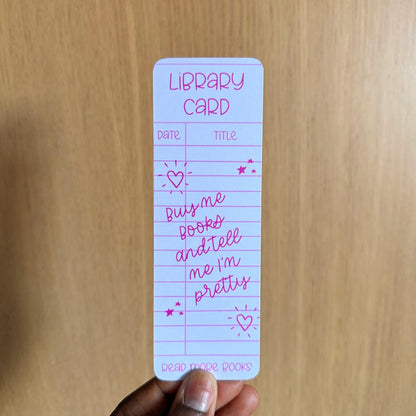 LiBRARY
CARD
DATE TITLE
Buy me
Books
and tell
me I'm
pretty
READ MORE BOOKS